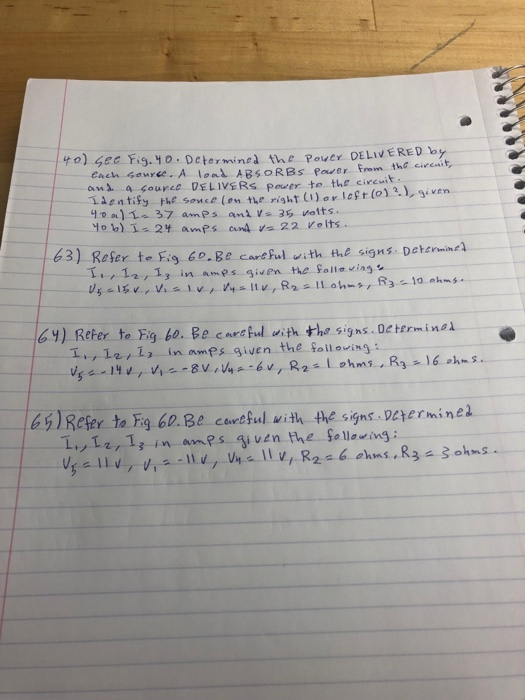 40) See Fig. 40. Determined the Power DELIVERED by
each source. A load ABSORBS Power from the circuit,
and a source DELIVERS power to the circuit.
Identify the souce (on the right (1) or left (0)?.), given
40 a) I = 37 amps and V = 35 volts.
40 b) I = 24 amps and V = 22 volts.
63) Refer to Fig 60. Be careful with the signs. Determined
I1, I2, I3 in amps given the following:
V5 = 15 v, V1 = 1 v, V4 = 11 v, R2 = 11 ohms, R3 = 10 ohms.
64) Refer to Fig 60. Be careful with the signs. Determined
I1, I2, I3 in amps given the following:
V5 = -14 v, V1 = -8 v, V4 = -6 v, R2 = 1 ohms, R3 = 16 ohms.
65) Refer to Fig 60. Be careful with the signs. Determined
I1, I2, I3 in amps given the following:
V5 = 11 v, V1 = -11 v, V4 = 11 v, R2 = 6 ohms, R3 = 3 ohms.